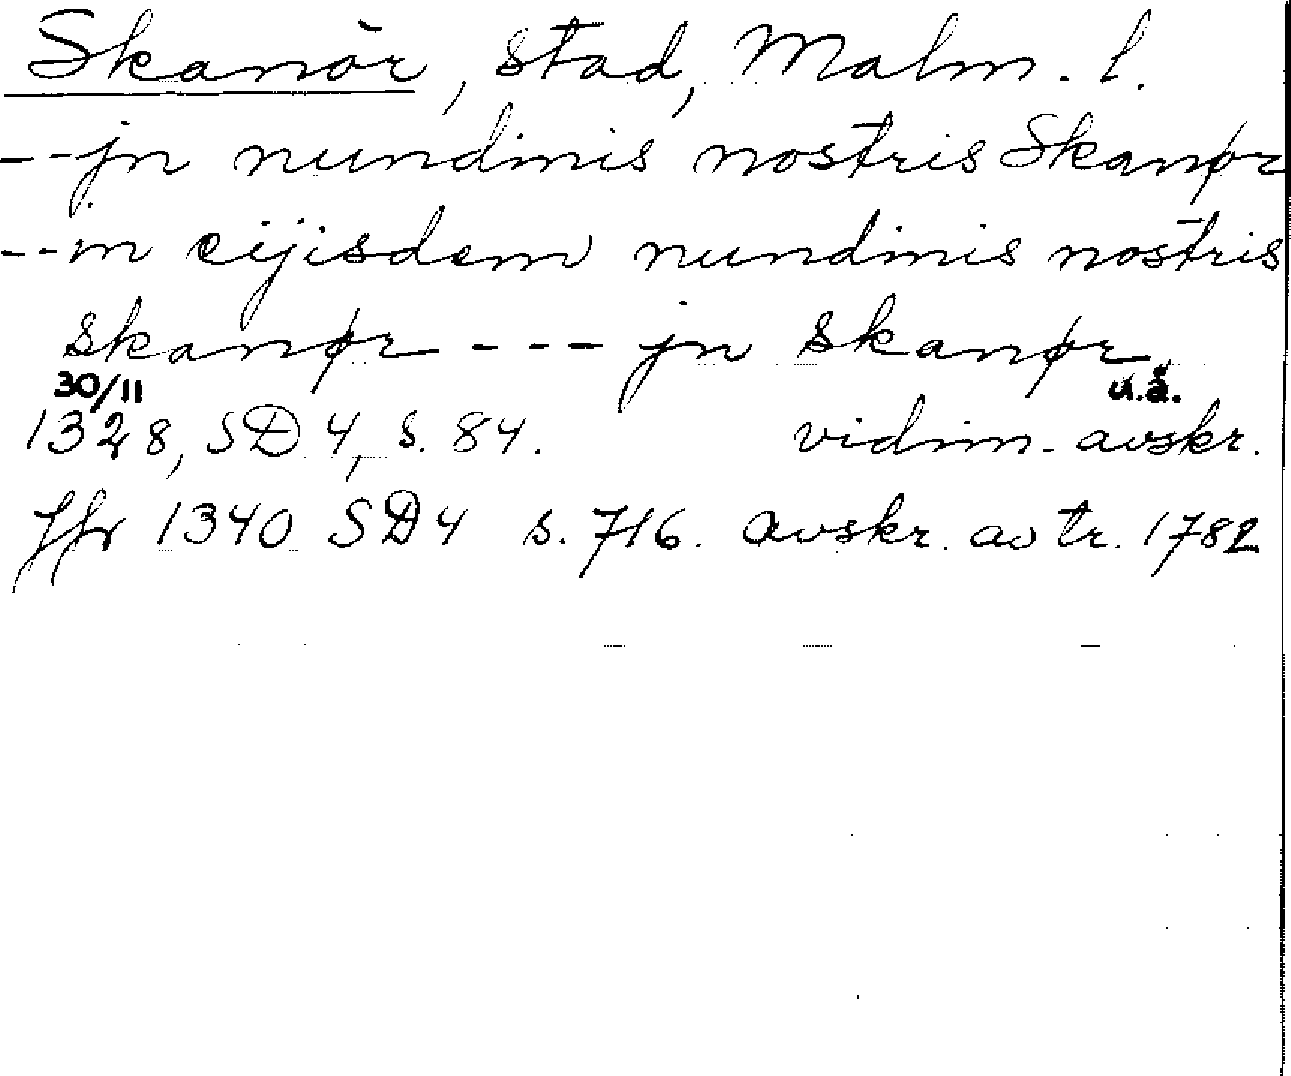 Skanör, stad, Malm. l.
--jn nundinis nostris Skanør
--in eijisdem nundinis nostris
skanør --- jn skanør
30/11 u.å.
1328, SD 4, s. 84. vidim. avskr.
Jfr 1340 SD 4 s. 716. avskr. av tr. 1782